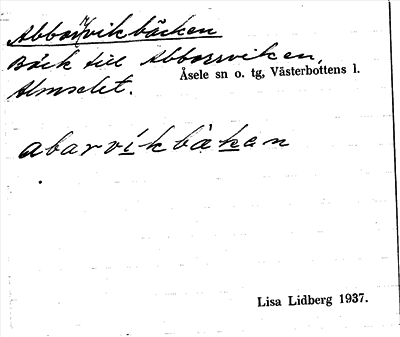 Abborrvikbäcken
Bäck till Abborrviken,
Åsele sn o. tg, Västerbottens l.
Almselet.
abarvikbäkan
Lisa Lidberg 1937.